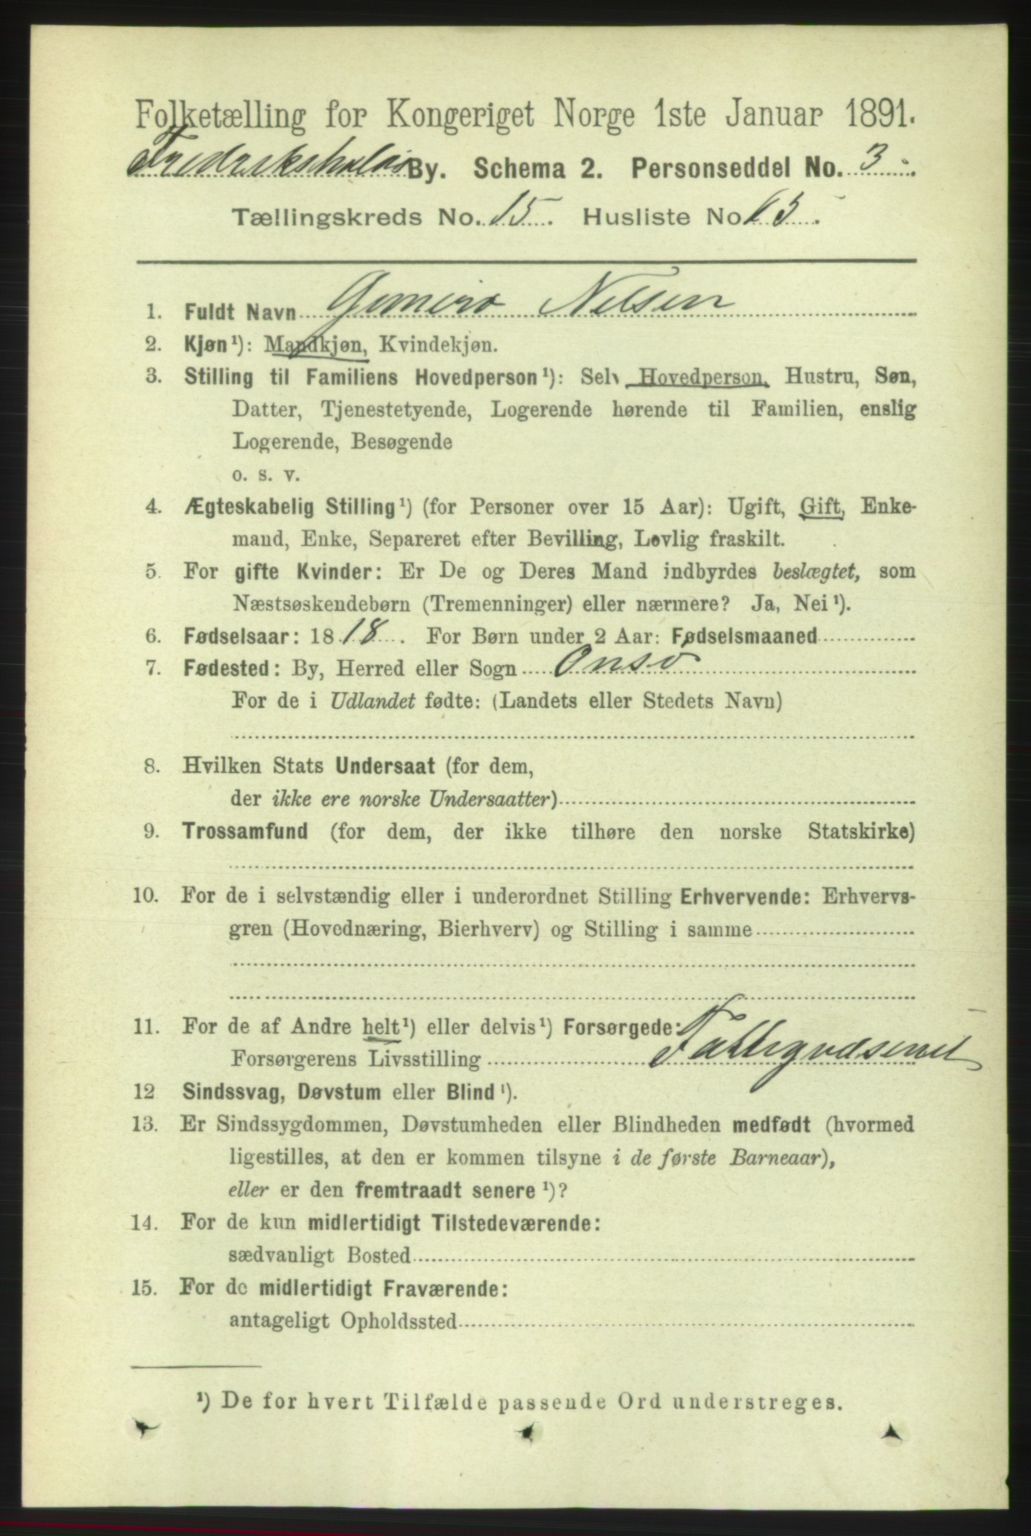 Folketælling for Kongeriget Norge 1ste Januar 1891.
Fredrikshalds By. Schema 2. Personseddel No. 3.
Tællingskreds No. 15. Husliste No. 63.
1. Fuldt Navn Nilsen
2. Kjøn ¹): Mandkjøn, Kvindekjøn.
3. Stilling til Familiens Hovedperson ¹): Selv Hovedperson, Hustru, Søn,
Datter, Tjenestetyende, Logerende hørende til Familien, enslig
Logerende, Besøgende
o. s. v.
4. Ægteskabelig Stilling ¹) (for Personer over 15 Aar): Ugift, Gift, Enke-
mand, Enke, Separeret efter Bevilling, Lovlig fraskilt.
5. For gifte Kvinder: Er De og Deres Mand indbyrdes beslægtet, som
Næstsøskendebørn (Tremenninger) eller nærmere? Ja, Nei ¹).
6. Fødselsaar: 1818. For Børn under 2 Aar: Fødselsmaaned
7. Fødested: By, Herred eller Sogn Onsø
For de i Udlandet fødte: (Landets eller Stedets Navn)
8. Hvilken Stats Undersaat (for dem,
der ikke ere norske Undersaatter)
9. Trossamfund (for dem, der ikke tilhøre den norske Statskirke)
10. For de i selvstændig eller i underordnet Stilling Erhvervende: Erhvervs-
gren (Hovednæring, Bierhverv) og Stilling i samme
11. For de af Andre helt ¹) eller delvis ¹) Forsørgede:
Forsørgerens Livsstilling Fattigvæsenet
12 Sindssvag, Døvstum eller Blind ¹).
13. Er Sindssygdommen, Døvstumheden eller Blindheden medfødt (hvormed
ligestilles, at den er kommen tilsyne i de første Barneaar),
eller er den fremtraadt senere ¹)?
14. For de kun midlertidigt Tilstedeværende:
sædvanligt Bosted
15. For de midlertidigt Fraværende:
antageligt Opholdssted
¹) De for hvert Tilfælde passende Ord understreges.